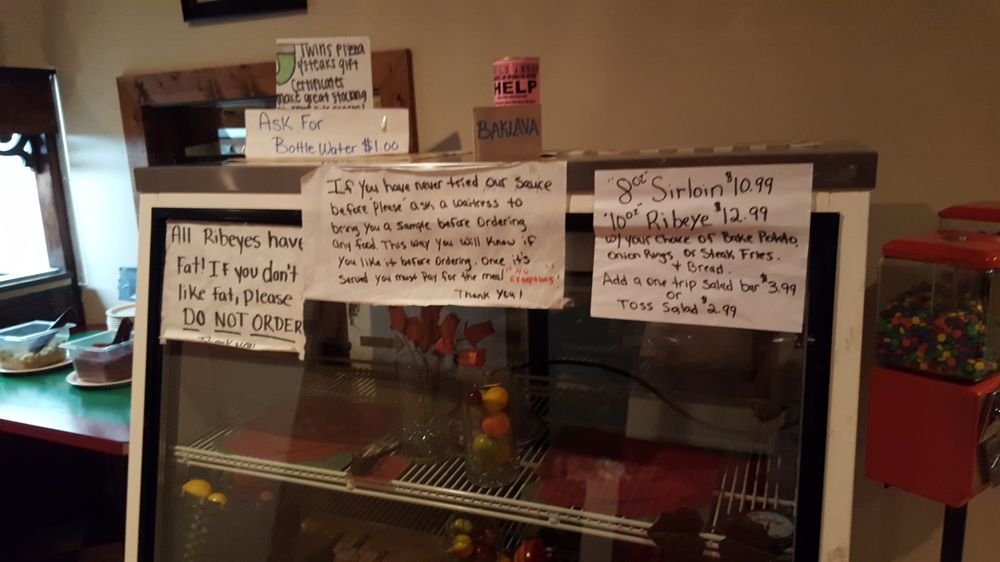 Twins Pizza
& Steaks gift
Certificates
make great stocking
HELP
Ask For
Bottle Water $1.00
BAKLAVA
All Ribeyes have
Fat! If you don't
like fat, please
DO NOT ORDER
Thank you
If you have never tried our Sauce
before "please" ask a waitress to
bring you a sample before ordering
any food. This way you will know if
you like it before ordering. Once it's
Served you must pay for the meal "NO
Exceptions"!
Thank you!
"8oz" Sirloin $10.99
"10oz" Ribeye $12.99
w/your choice of Bake Potato,
onion Rings, or Steak Fries.
+ Bread.
Add a one trip Salad bar $3.99
or
Toss Salad $2.99